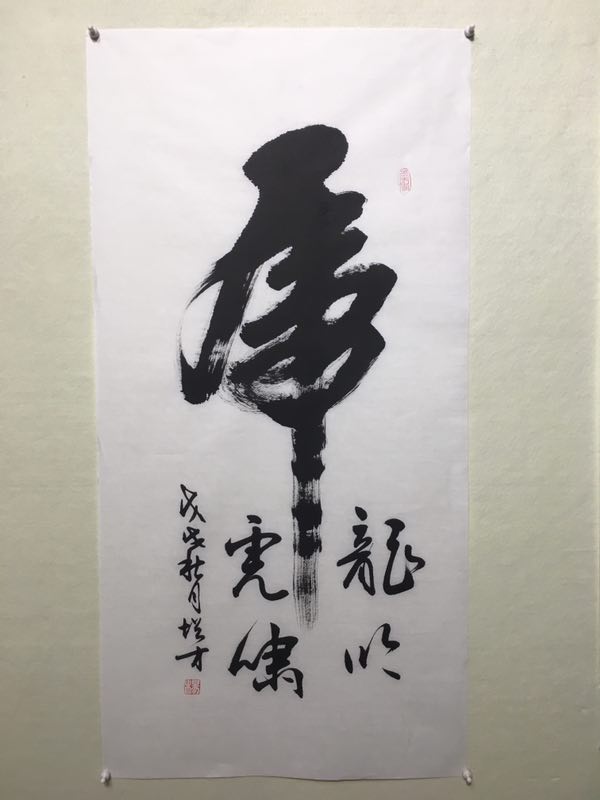 虎
龍吟
虎嘯
戊戌秋月